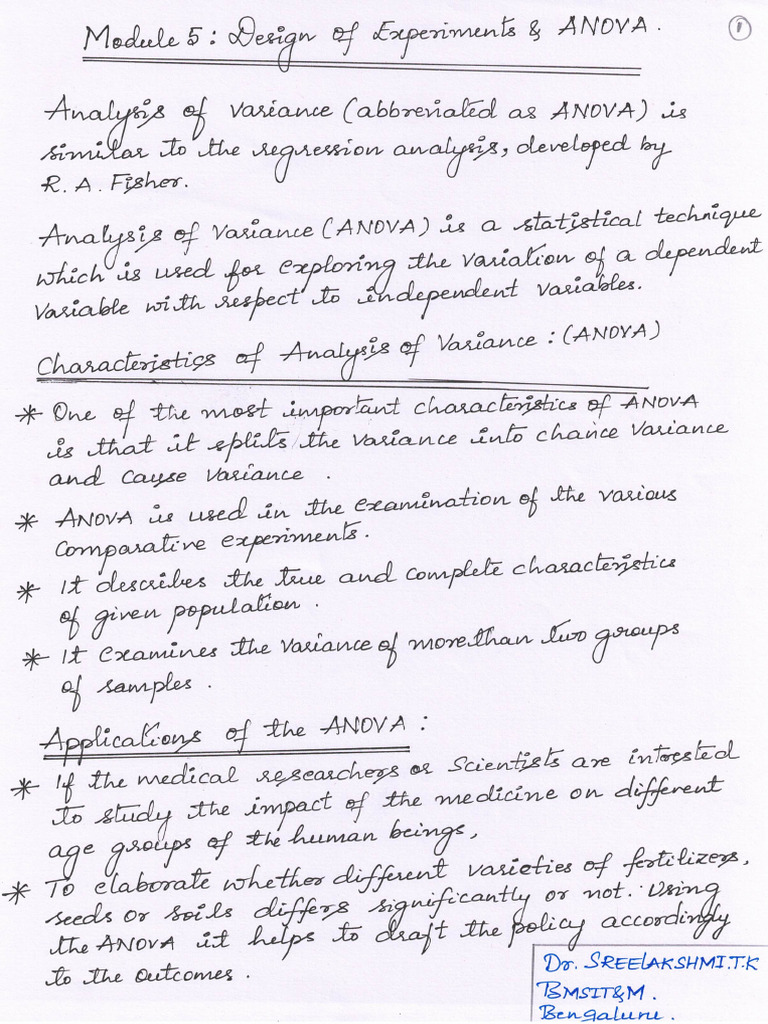 Module 5: Design of Experiments & ANOVA.
1
Analysis of variance (abbreviated as ANOVA) is
similar to the regression analysis, developed by
R. A. Fisher.
Analysis of Variance (ANOVA) is a statistical technique
which is used for exploring the variation of a dependent
variable with respect to independent variables.
Characteristics of Analysis of Variance : (ANOVA)
* One of the most important characteristics of ANOVA
is that it splits the variance into chance variance
and cause variance .
* ANOVA is used in the examination of the various
comparative experiments.
* It describes the true and complete characteristics
of given population .
* It examines the variance of more than two groups
of samples .
Applications of the ANOVA :
* If the medical researchers or scientists are intrested
to study the impact of the medicine on different
age groups of the human beings,
* To elaborate whether different varieties of fertilizers,
seeds or soils differs significantly or not. Using
the ANOVA it helps to draft the policy accordingly
to the outcomes .
Dr. SREELAKSHMI.T.K
BMSIT&M.
Bengaluru.